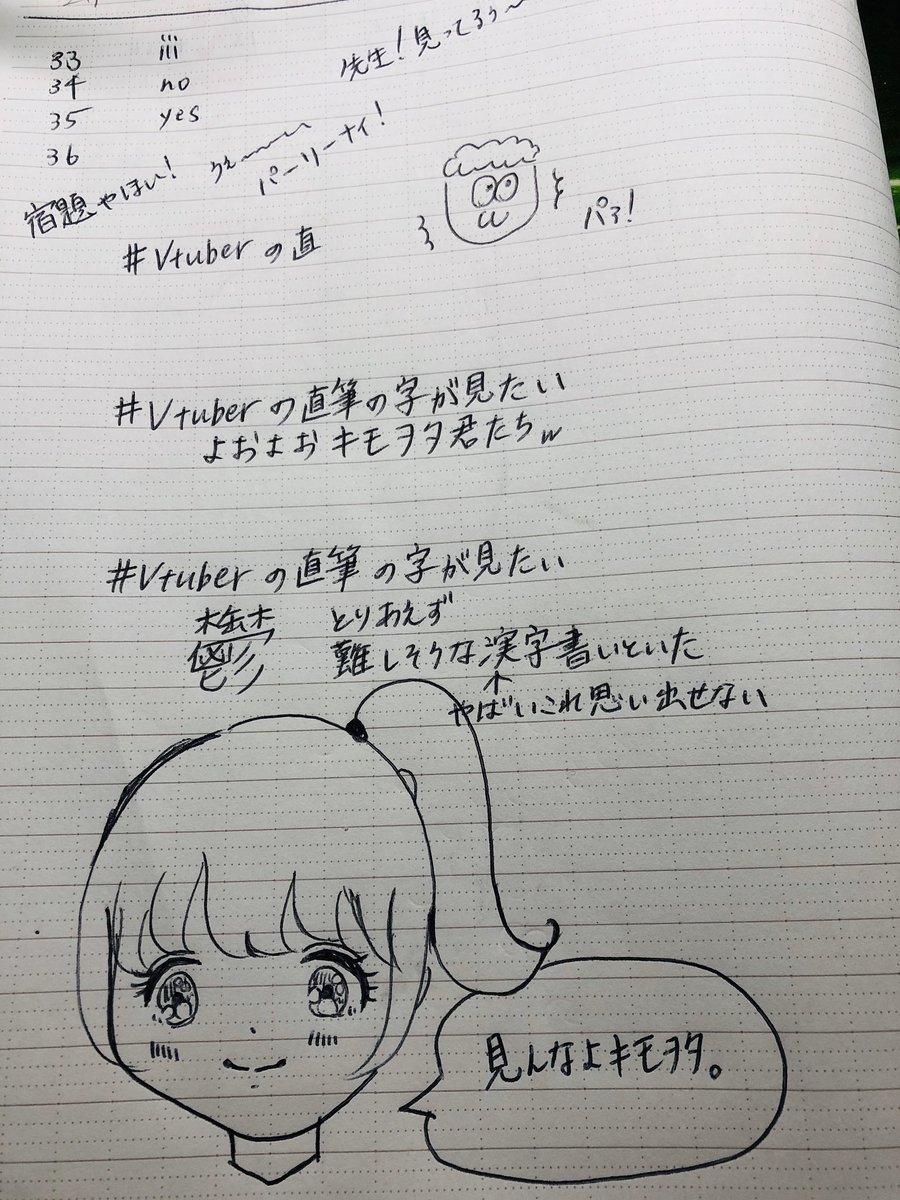 33 iii
34 no
35 yes
36
先生!見ってるぅ〜
宿題やほい!
うぇ〜〜〜
パーリーナイ!
パァ!
#Vtuberの直
#Vtuberの直筆の字が見たい
よおよおキモヲタ君たちw
#Vtuberの直筆の字が見たい
鬱 とりあえず
難しそうな漢字書いといた
↑
やばいこれ思い出せない
見んなよキモヲタ。